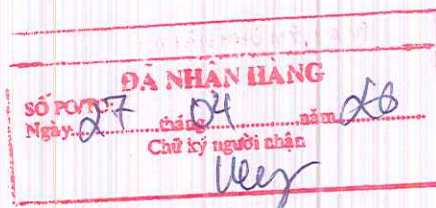 ĐÃ NHẬN HÀNG
SỐ PO/TO:
Ngày 27 tháng 04 năm 26
Chữ ký người nhận